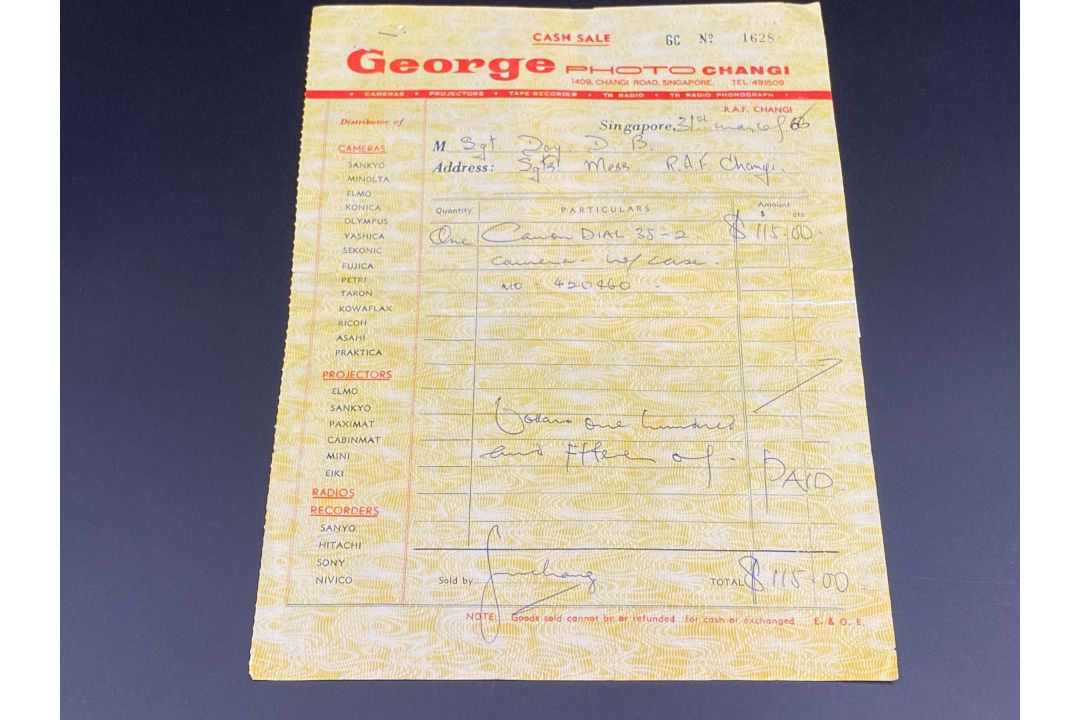 CASH SALE
GC Nº 1628
George PHOTO CHANGI
1409, CHANGI ROAD, SINGAPORE. TEL: 491509
• CAMERAS • PROJECTORS • TAPE-RECORDER • TR RADIO • TR RADIO PHONOGRAPH •
R.A.F. CHANGI
Distributor of
Singapore, 31st March 66
M Sgt Day D. B.
Address: Sgts Mess R.A.F. Changi.
CAMERAS
SANKYO
MINOLTA
ELMO
KONICA
OLYMPUS
YASHICA
SEKONIC
FUJICA
PETRI
TARON
KOWAFLAX
RICOH
ASAHI
PRAKTICA
PROJECTORS
ELMO
SANKYO
PAXIMAT
CABINMAT
MINI
EIKI
RADIOS
RECORDERS
SANYO
HITACHI
SONY
NIVICO
Quantity PARTICULARS Amount
$ cts
One Canon DIAL 35-2. $115.00
camera - w/ case.
NO. 420460.
Dollars one hundred
and fifteen of.
PAID
Sold by TOTAL $115.00
NOTE: Goods sold cannot be or refunded for cash or exchanged E. & O. E.